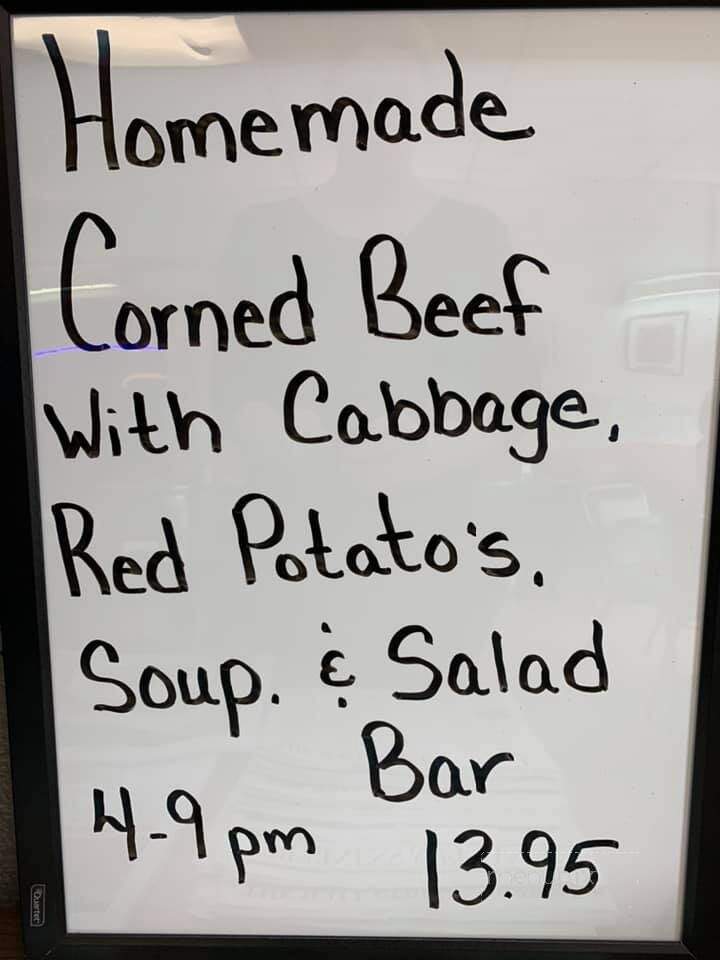 Homemade
Corned Beef
With Cabbage,
Red Potato's,
Soup. & Salad
Bar
4-9 pm 13.95
Quartet